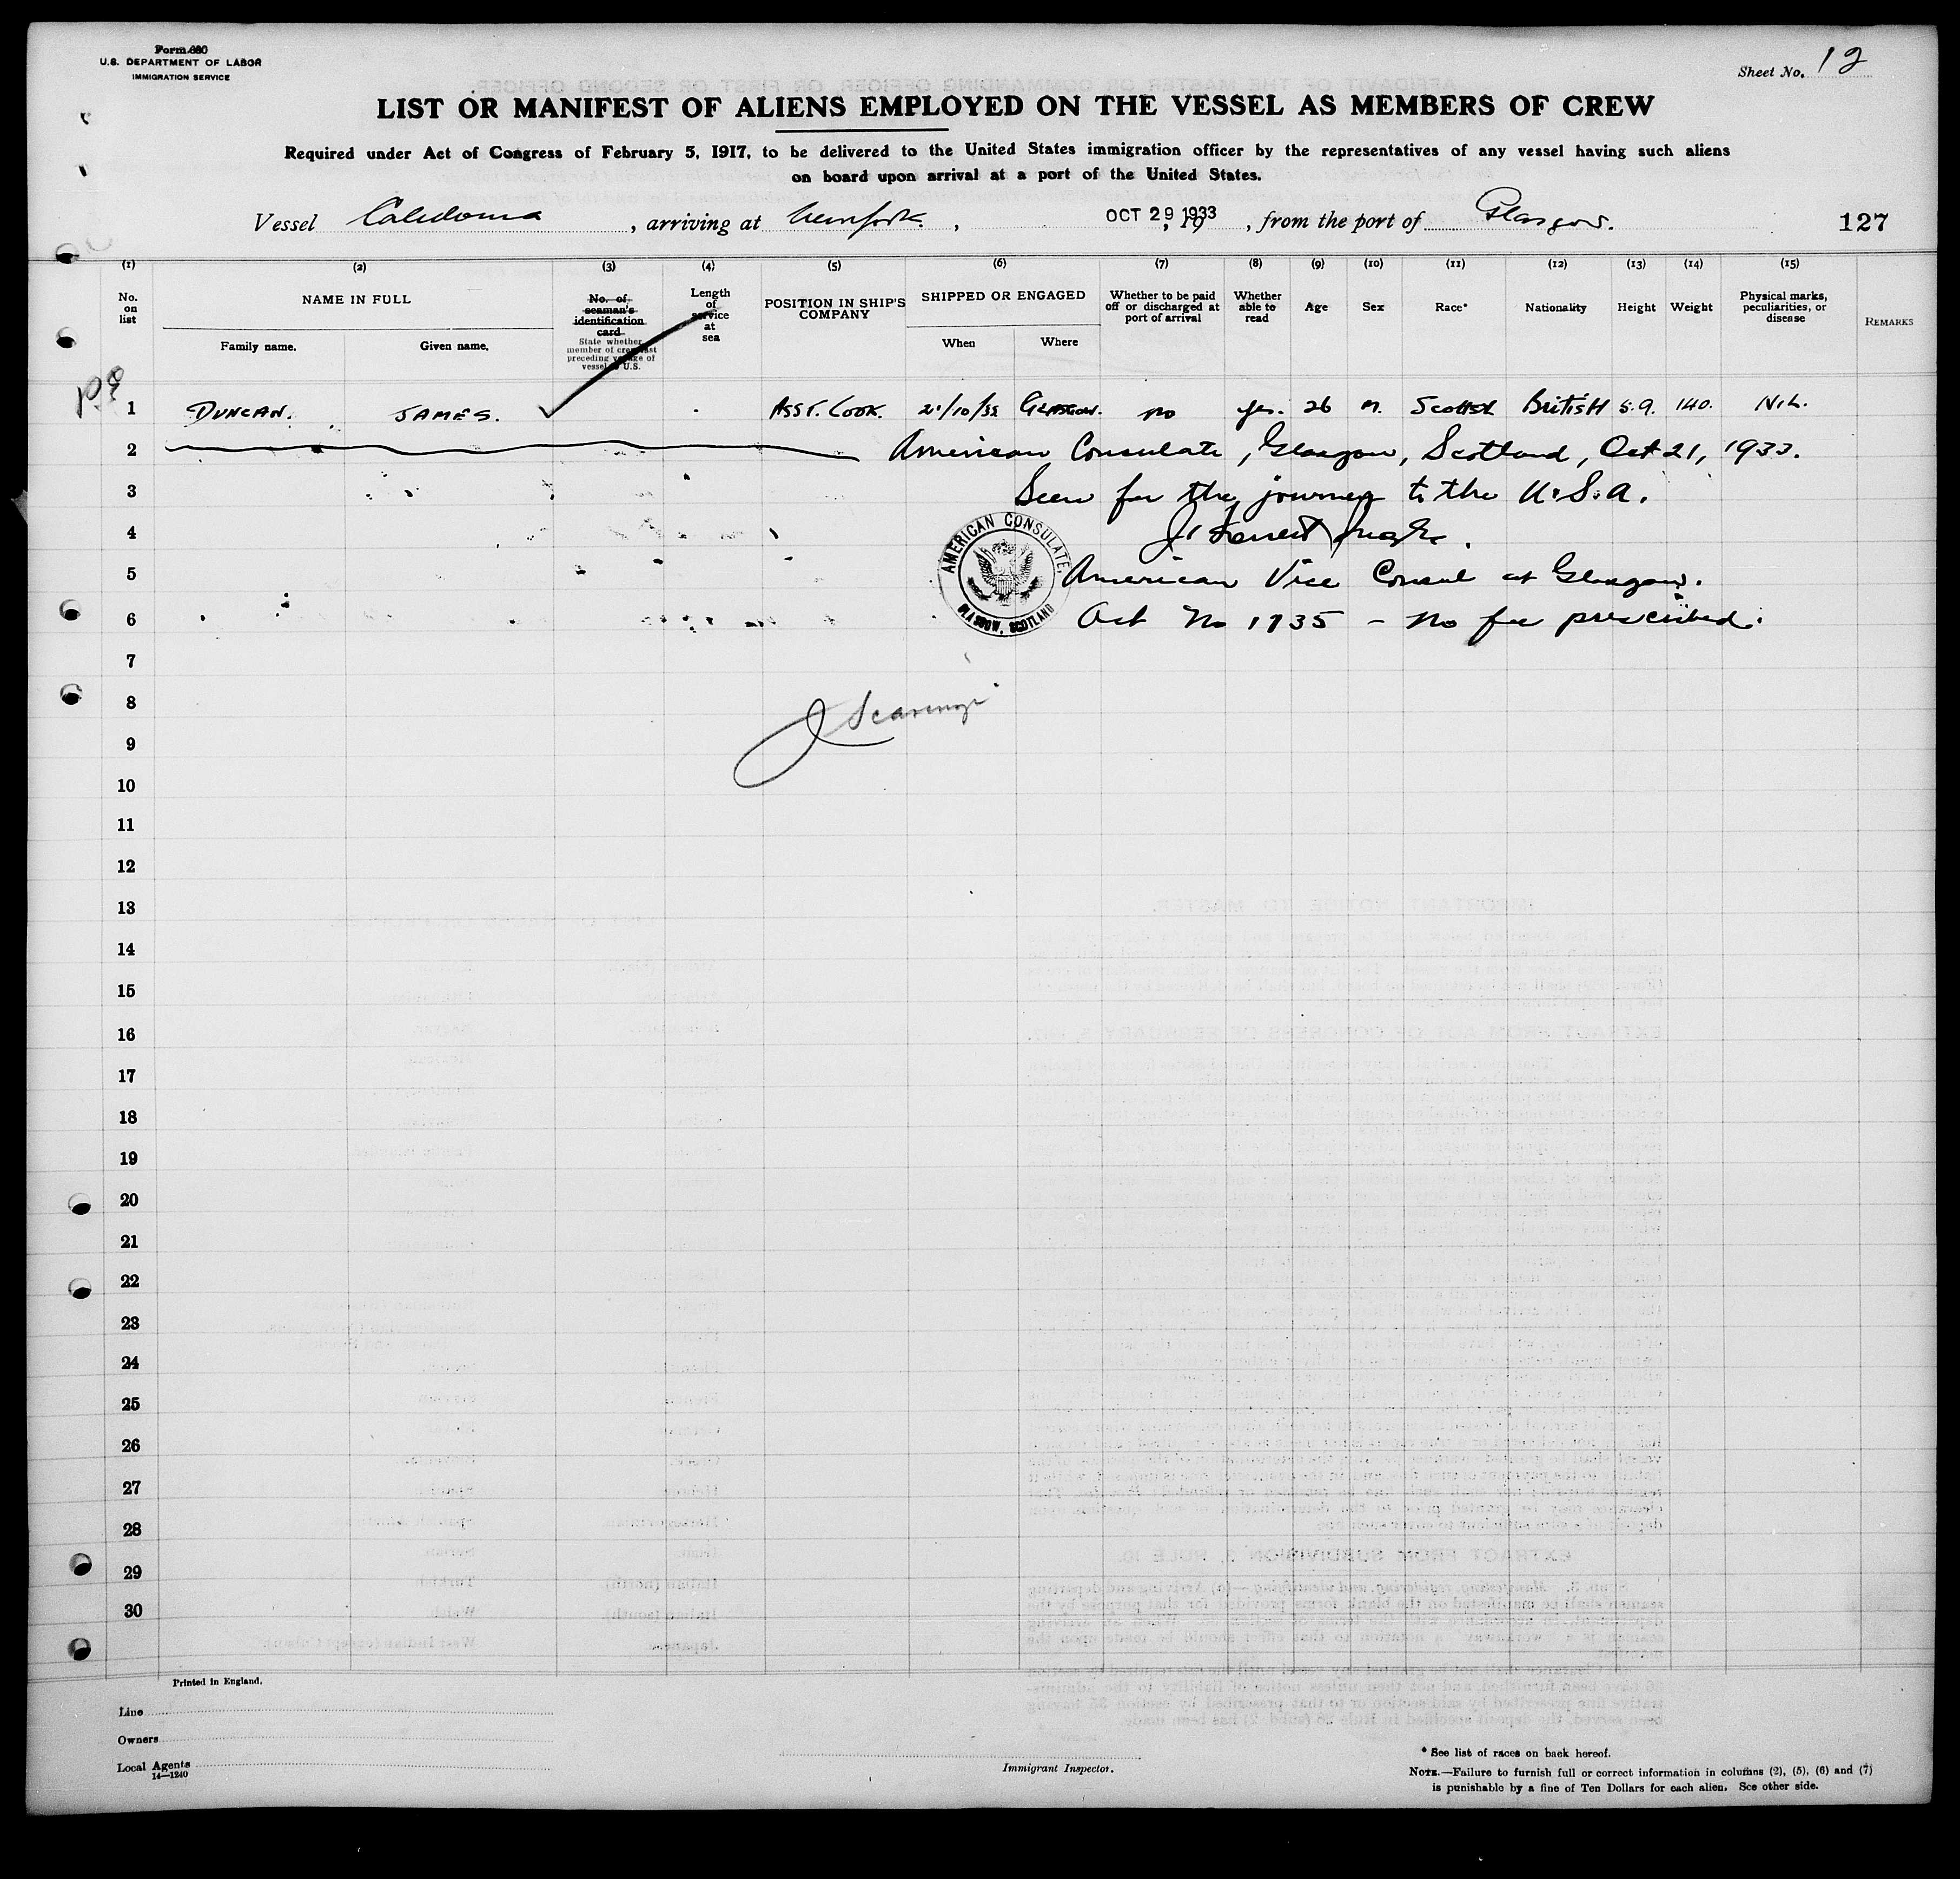 Form 680
U.S. DEPARTMENT OF LABOR
IMMIGRATION SERVICE
Sheet No. 12
LIST OR MANIFEST OF ALIENS EMPLOYED ON THE VESSEL AS MEMBERS OF CREW
Required under Act of Congress of February 5, 1917, to be delivered to the United States immigration officer by the representatives of any vessel having such aliens
on board upon arrival at a port of the United States.
Vessel Caledonia, arriving at New York, OCT 29 1933, 19, from the port of Glasgow. 127
(1) (2) (3) (4) (5) (6) (7) (8) (9) (10) (11) (12) (13) (14) (15)
No. on list
NAME IN FULL
Family name. Given name.
No. of seaman's identification card
State whether member of crew last preceding voyage of vessel to U.S.
Length of service at sea
POSITION IN SHIP'S COMPANY
SHIPPED OR ENGAGED
When Where
Whether to be paid off or discharged at port of arrival
Whether able to read
Age
Sex
Race*
Nationality
Height
Weight
Physical marks, peculiarities, or disease
REMARKS
1 DUNCAN. JAMES. ASST. COOK. 21/10/33 GLASGOW. no yes. 26 M. Scottish British 5.9. 140. NIL.
2 American Consulate, Glasgow, Scotland, Oct 21, 1933.
3 Seen for the journey to the U.S.A.
4
AMERICAN CONSULATE,
GLASGOW, SCOTLAND
5 American Vice Consul at Glasgow.
6 No fee prescribed.
7
8
9
10
11
12
13
14
15
16
17
18
19
20
21
22
23
24
25
26
27
28
29
30
Printed in England.
Line
Owners
Local Agents
14—1240
Immigrant Inspector.
* See list of races on back hereof.
NOTE.—Failure to furnish full or correct information in columns (2), (5), (6) and (7)
is punishable by a fine of Ten Dollars for each alien. See other side.